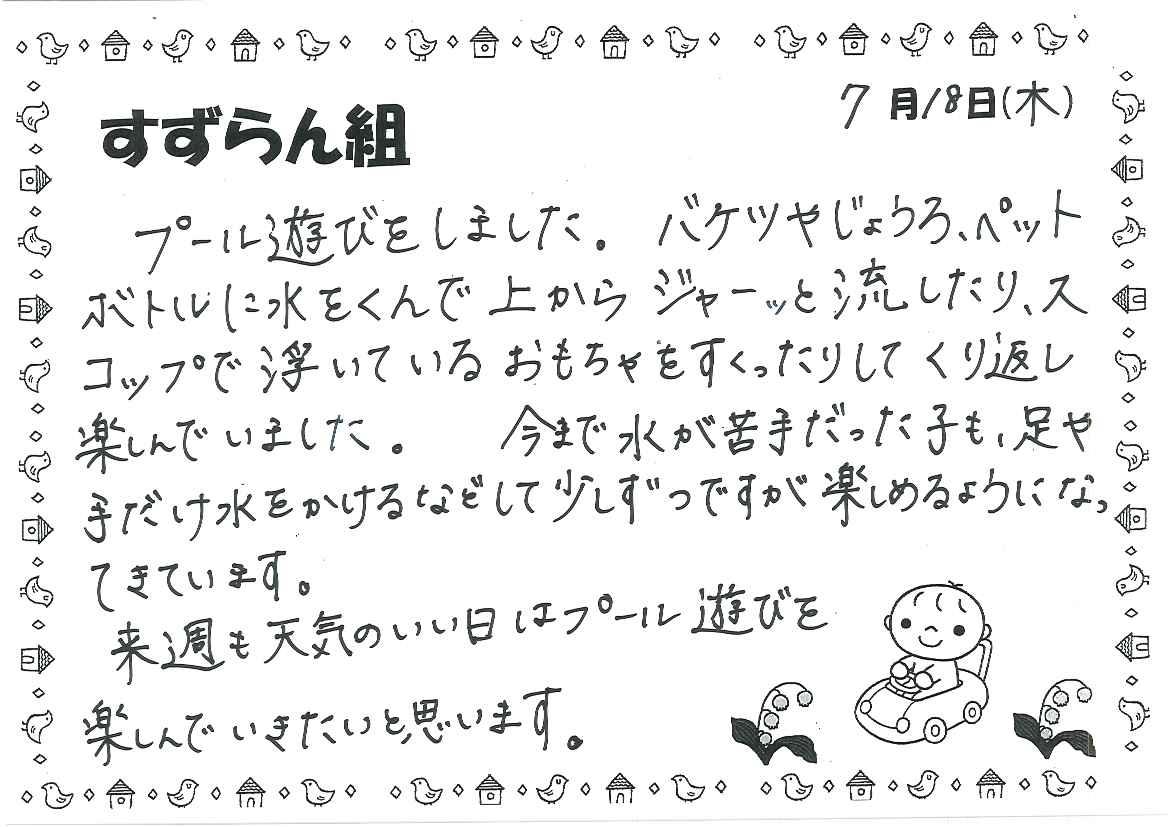 7月18日(木)
すずらん組
プール遊びをしました。 バケツやじょうろ、ペット
ボトルに水をくんで上から ジャーッと流したり、ス
コップで浮いているおもちゃをすくったりしてくり返し
楽しんでいました。 今まで水が苦手だった子も、足や
手だけ水をかけるなどして少しずつですが楽しめるようになっ
てきています。
来週も天気のいい日はプール遊びを
楽しんでいきたいと思います。